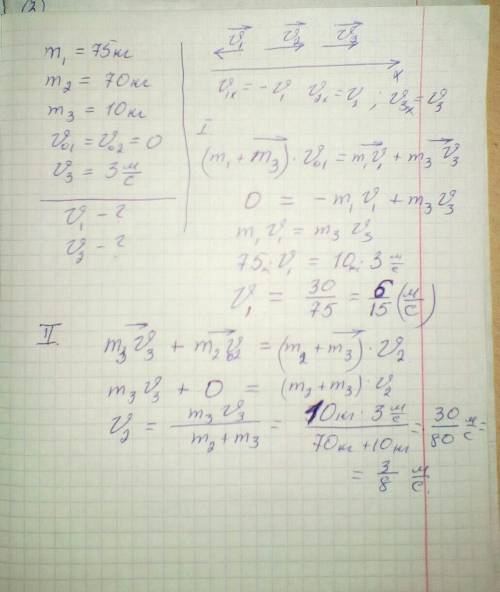 (2)
m₁ = 75кг
m₂ = 70кг
m₃ = 10кг
v₀₁ = v₀₂ = 0
v₃ = 3 м/с
v₁ - ?
v₂ - ?
v₁ v₂ v₃
x
v₁ₓ = -v₁ v₂ₓ = v₂ ; v₃ₓ = v₃
I
(m₁ + m₃) · v₀₁ = m₁v₁ + m₃v₃
0 = -m₁v₁ + m₃v₃
m₁v₁ = m₃v₃
75 · v₁ = 10 · 3 м/с
v₁ = 30/75 = 6/15 (м/с)
II.
m₃v₃ + m₂v₀₂ = (m₂ + m₃) · v₂
m₃v₃ + 0 = (m₂ + m₃) · v₂
v₂ = m₃v₃/m₂ + m₃ = 10кг · 3 м/с/70кг + 10кг = 30/80 м/с =
= 3/8 м/с